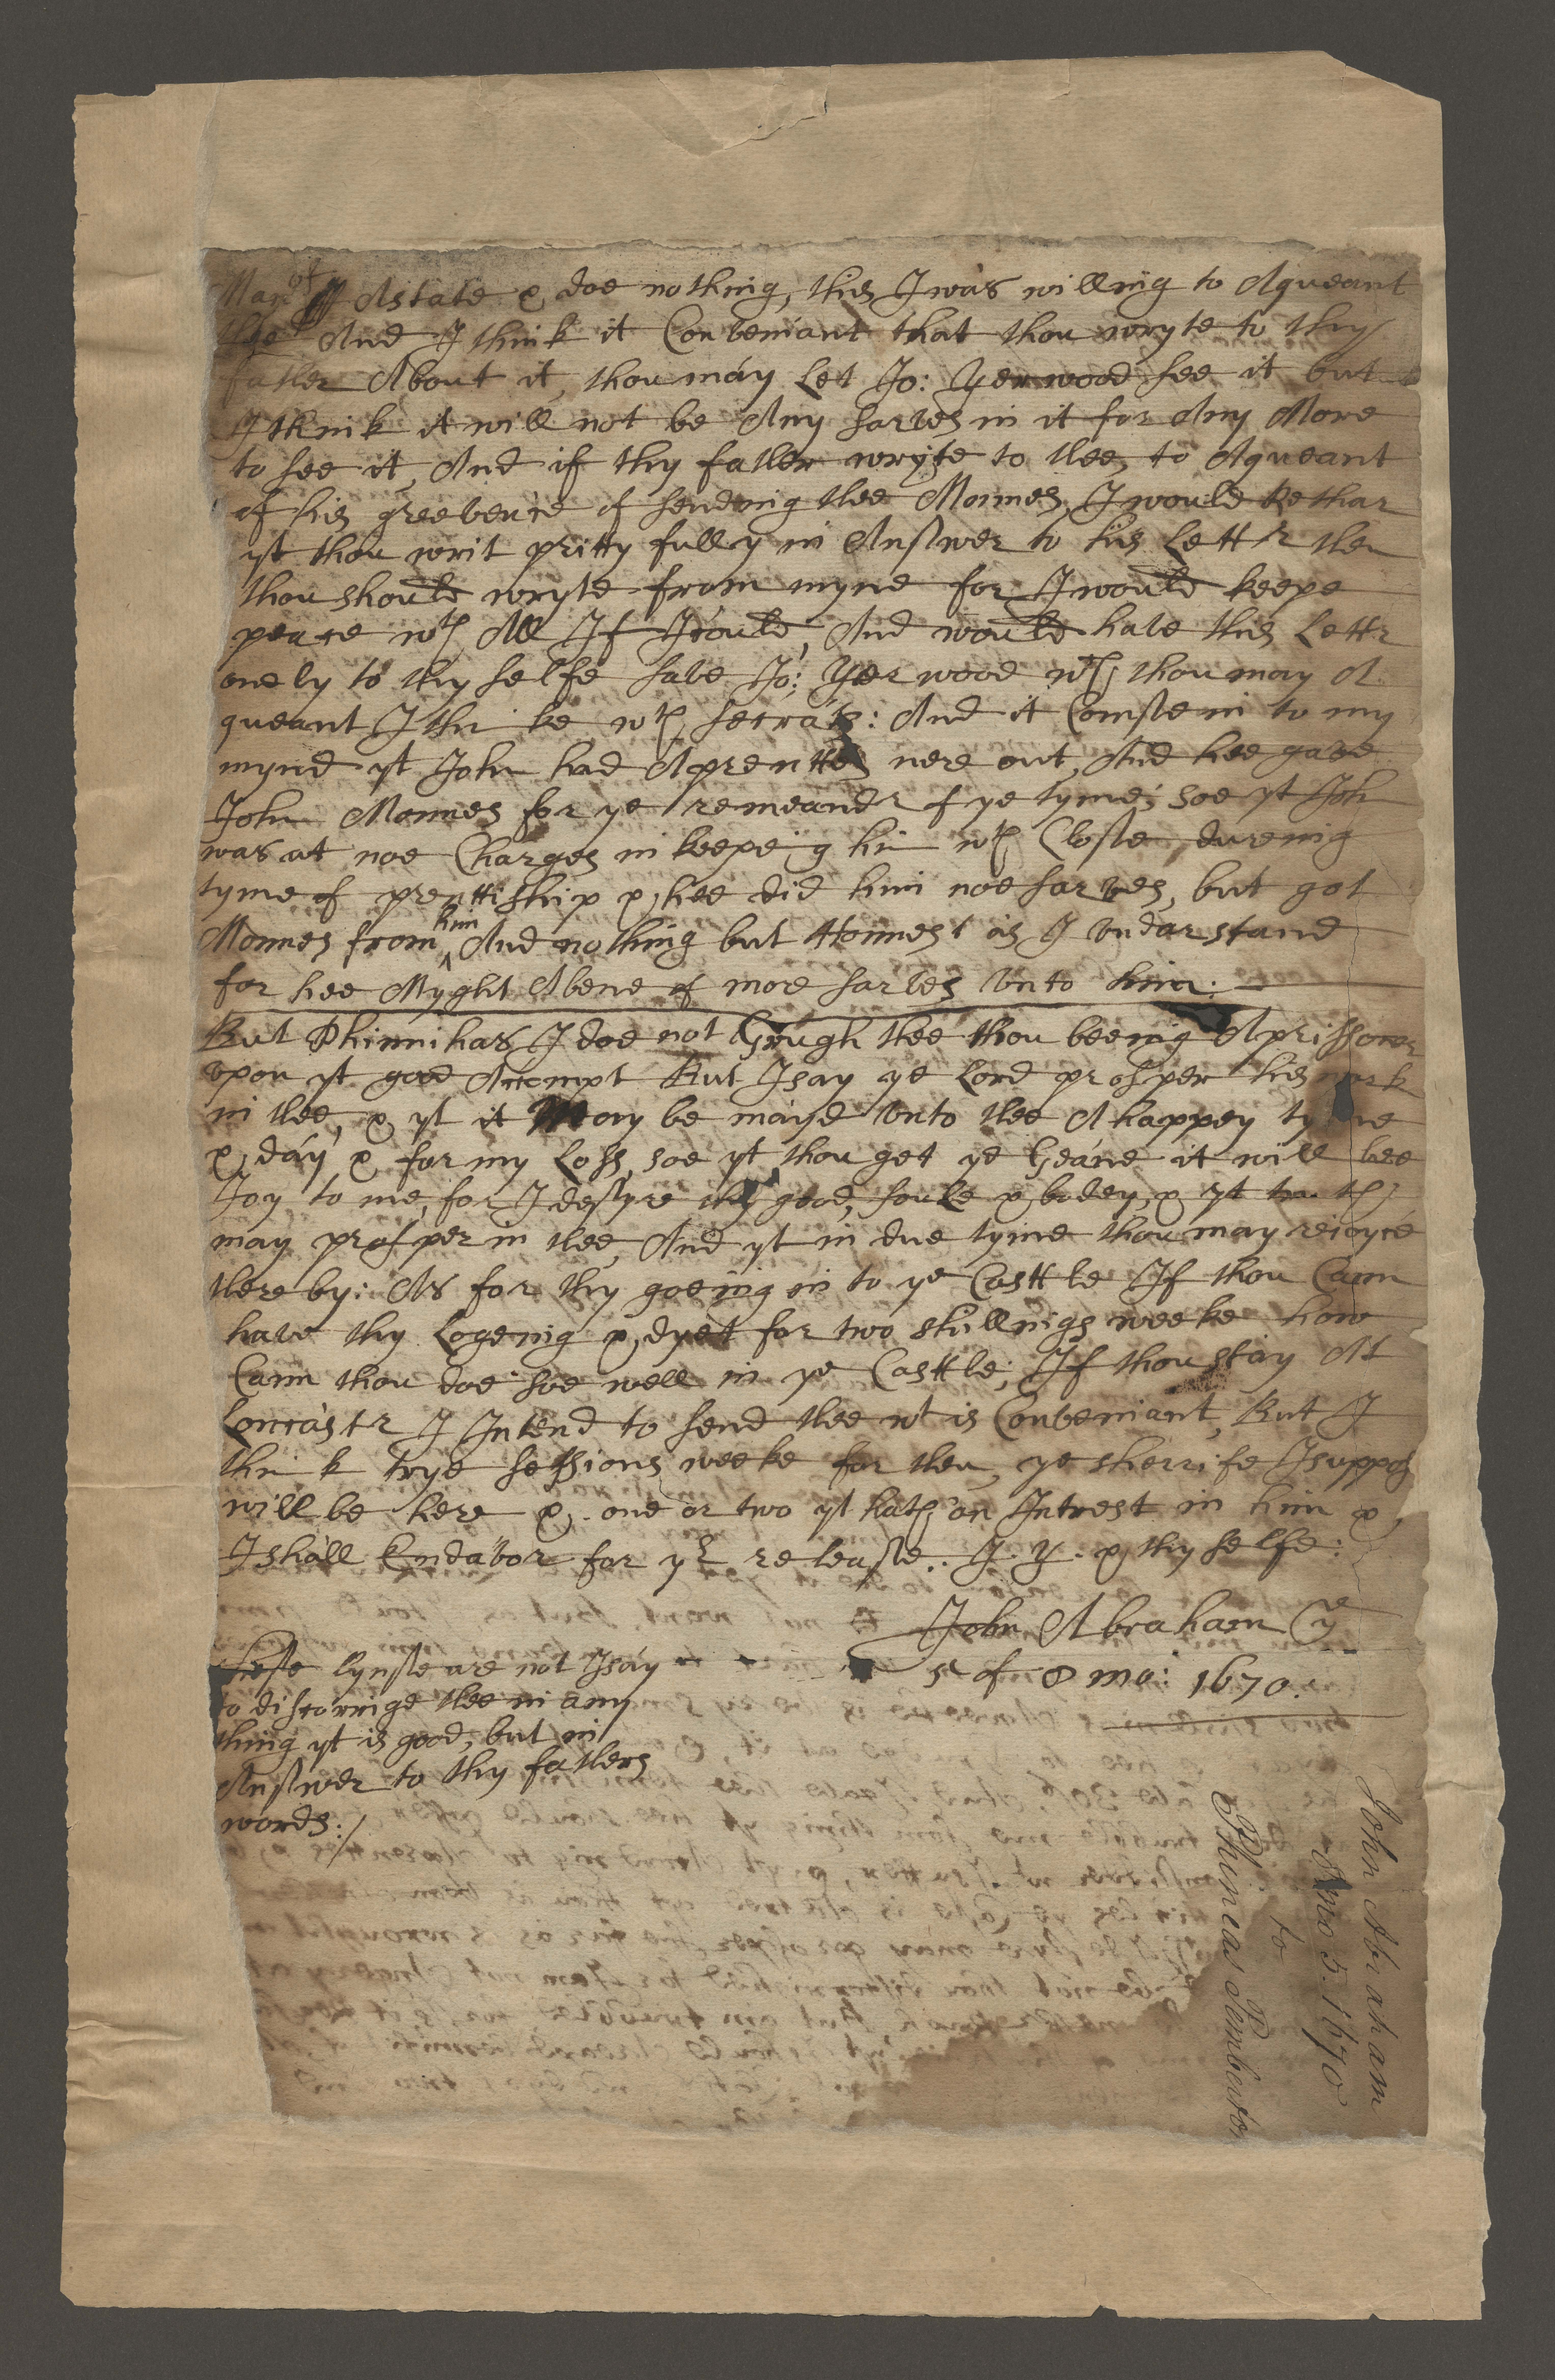 Man of Astate & doe nothing, this I was willing to Aqueant
thee And I think it Conveniant that thou wryte to thy
father About it, thou may Let Jo: Yerwood see it but
I think it will not be Any sarves in it for Any More
to see it, And if thy father wryte to thee to Aqueant
of his greevence of sending thee Monnes, I would Rethar
yt thou writ pritty fully in Answer to his Lettr then
thou should wryte from myne for I would keepe
peace wth All If I could, And would have this Lettr
onely to thy selfe save Jo: Yerwood wch thou may A
queant I thinke wth secrats: And it Comstein to my
mynd yt John had Aprenttes nere out, And hee gave
John Monnes for ye remeandr of ye tyme; soe yt John
was at noe Charges in keepeing him wth Closte, dureing
tyme of prenttiship & hee did him noe sarves, but got
Monnes from him And nothing but Honnest as I Undarstand
for hee Myght Abene of more sarves Unto him:
But Phinnihas I doe not Grough thee thou beeing Aprissoner
upon yt good Accompt But I say ye Lord prosper his work
in thee, & yt it May be mayd Unto thee A happey tyme
& day & for my Loss, soe yt thou get ye Geane it will bee
Joy to me, for I desyre thy good, soule & bodey, & yt truth
may prosper in thee, And yt in due tyme thou may reioyce
there by: As for thy goeing in to ye Casttle If thou Cann
have thy Logeing & dyet for two shillings weeke how
Cann thou doe soe well in ye Casttle; If thou stay At
Loncastr I Intend to send thee wt is Conveniant, But I
think trye sessions weeke for then, ye sherrife I suppos
will be here & one or two yt hath an Intrest in him &
I shall Endavor for yr release. J. Y. & thy selfe:
John Abraham ye
5t of 8 mo: 1670.
these lynste are not I say
to discorrige thee in any
thing yt is good, but in
Answer to thy fathers
words:/
John Abraham
8mo 5. 1670
to
Phineas Pemberton